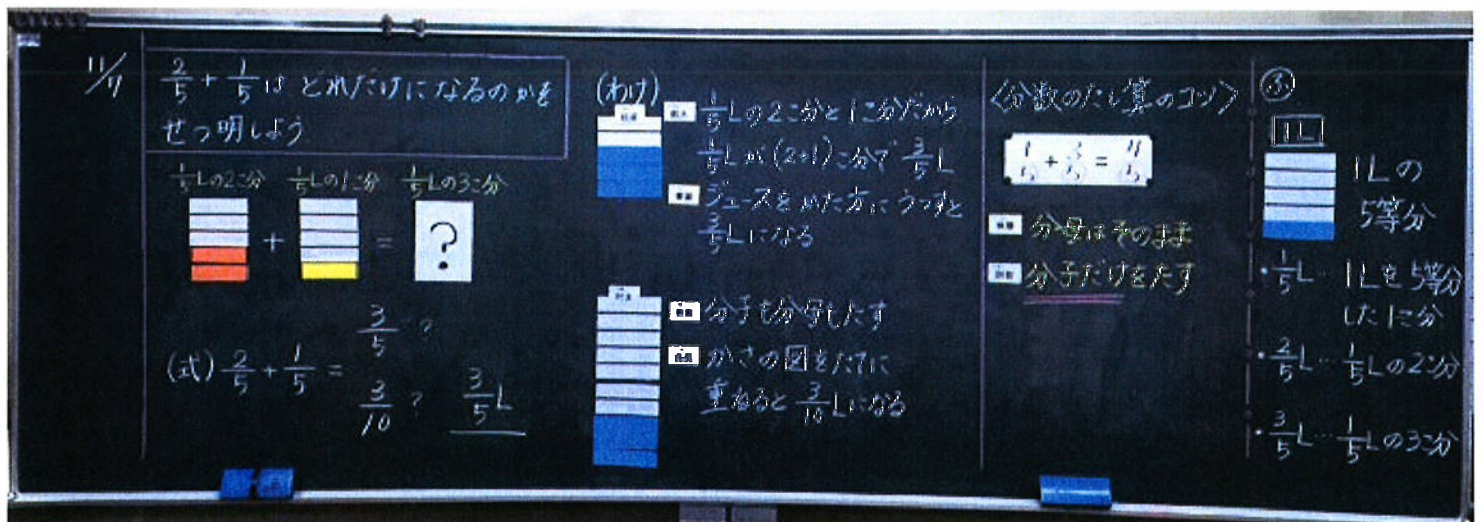 11/7
2/5 + 1/5は どれだけになるのかを
せつ明しよう
1/5Lの2こ分 1/5Lの1こ分 1/5Lの3こ分
+ = ?
(式) 2/5 + 1/5 =
3/5 ?
3/10 ?
3/5L
(わけ)
1/5Lの2こ分と1こ分だから
1/5Lが(2+1)こ分で 3/5L
ジュースを めた方に うつすと
3/5Lになる
分子も分母もたす
かさの図をたてに
重ねると 3/10Lになる
〈分数のたし算のコツ〉
分母はそのまま
分子だけをたす
③
1L
1Lの
5等分
・1/5L… 1Lを5等分
した1こ分
・2/5L… 1/5Lの2こ分
・3/5L… 1/5Lの3こ分